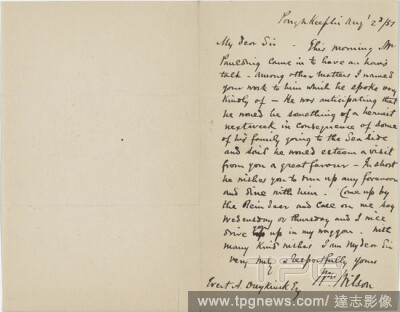 Poughkeepsie Aug' 23/51
My dear Sir - This morning Mr
Paulding came in to have an hours
talk - among other matters I named
your work to him which he spoke very
kindly of - He was anticipating that
he would be something of a hermit
next week in consequence of some
of his family going to the Sea Side
and said he would esteem a visit
from you a great favour - In short
he wishes you to run up any forenoon
and dine with him. Come up by
the Reindeer and call on me say
Wednesday or Thursday and I will
drive up in my waggon. With
many kind wishes I am My dear Sir
very respectfully yours
Wm Wilson
Evert A Duyckinck Esq
TPG
www.tpgnews.com / 達志影像